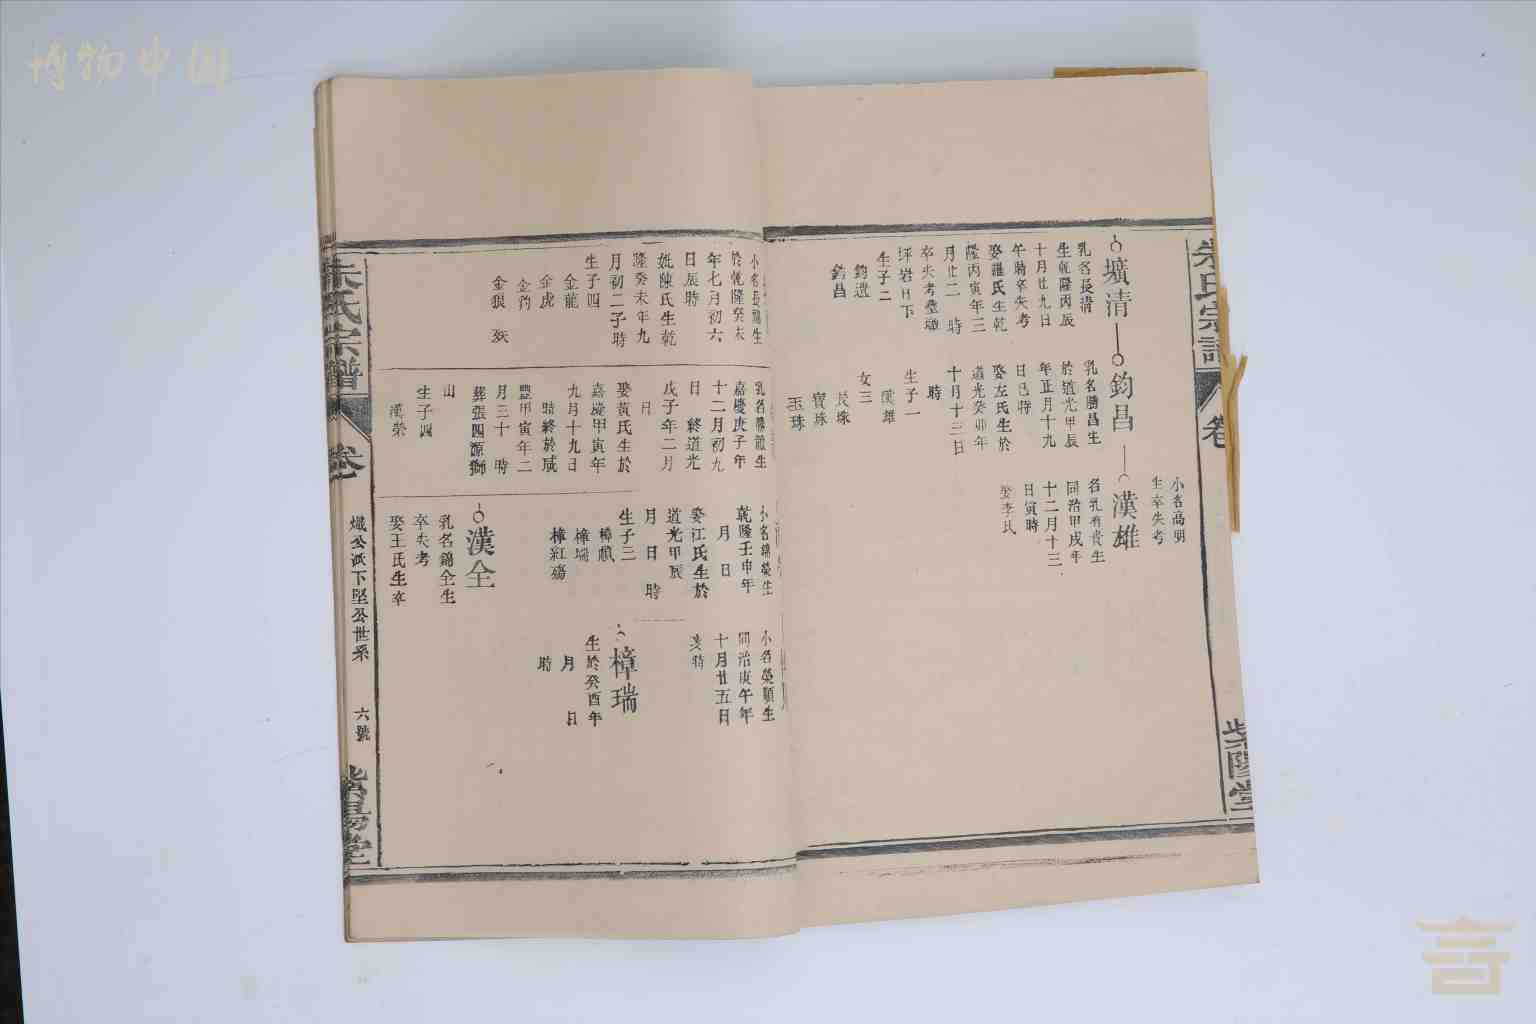 博物中国
朱氏宗譜
卷
紫陽堂
壙清
乳名長清
生乾隆丙辰
十月廿九日
午時卒失考
娶羅氏生乾
隆丙寅年三
月廿二 時
卒失考塟
坪岩日下
生子二
鈞選
鈞昌
鈞昌
乳名勝昌生
於道光甲辰
年正月十九
日巳時
娶左氏生於
道光癸卯年
十月十三日
時
生子一
漢雄
女三
長珠
寶珠
玉珠
小名高朋
生卒失考
漢雄
名乳有貴生
同治甲戌年
十二月十三
日寅時
娶李氏
小名長 生
於乾隆癸未
年七月初六
日辰時
妣陳氏生乾
隆癸未年九
月初二子時
生子四
金龍
金虎
金鈞
金狠 殀
乳名 生
嘉慶庚子年
十二月初九
日 終道光
戊子年二月
日
娶黃氏生於
嘉慶甲寅年
九月十九日
時終於咸
豐甲寅年二
月三十 時
葬張四源獅
山
生子四
漢榮
小名錦榮生
乾隆壬申年
月 日
娶江氏生於
道光甲辰
月 日 時
生子三
樟
樟瑞
樟紅殤
漢全
乳名錦全生
卒失考
娶王氏生卒
小名榮順生
同治庚午年
十月廿五日
亥時
樟瑞
生於癸酉年
月 日
時
朱氏宗譜
卷
熾公派下堅公世系
六號
紫陽堂